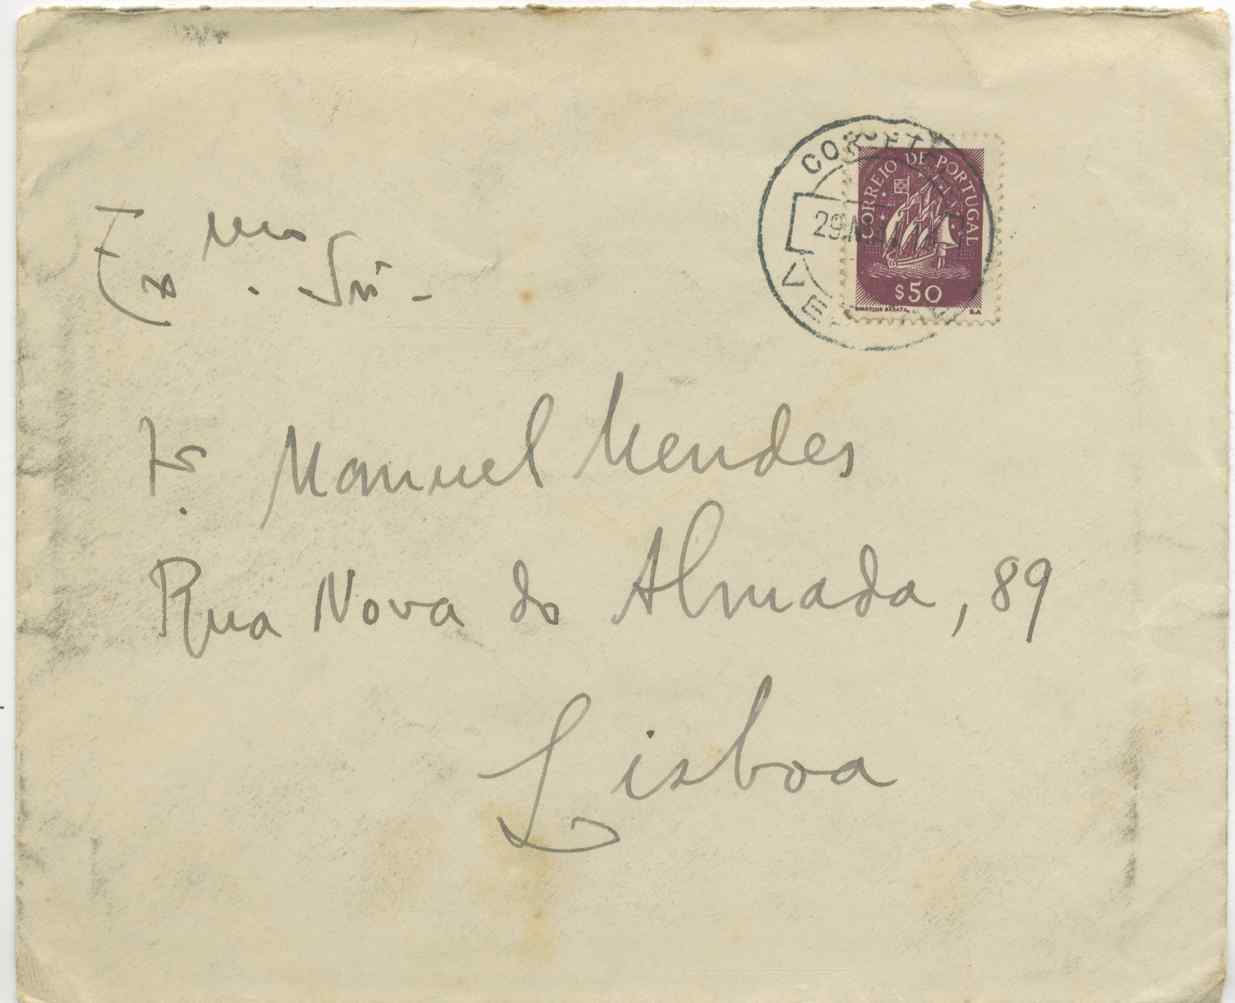 CORREIO DE PORTUGAL
$50
29
Exmo. Snr.
Dr. Manuel Mendes
Rua Nova do Almada, 89
Lisboa